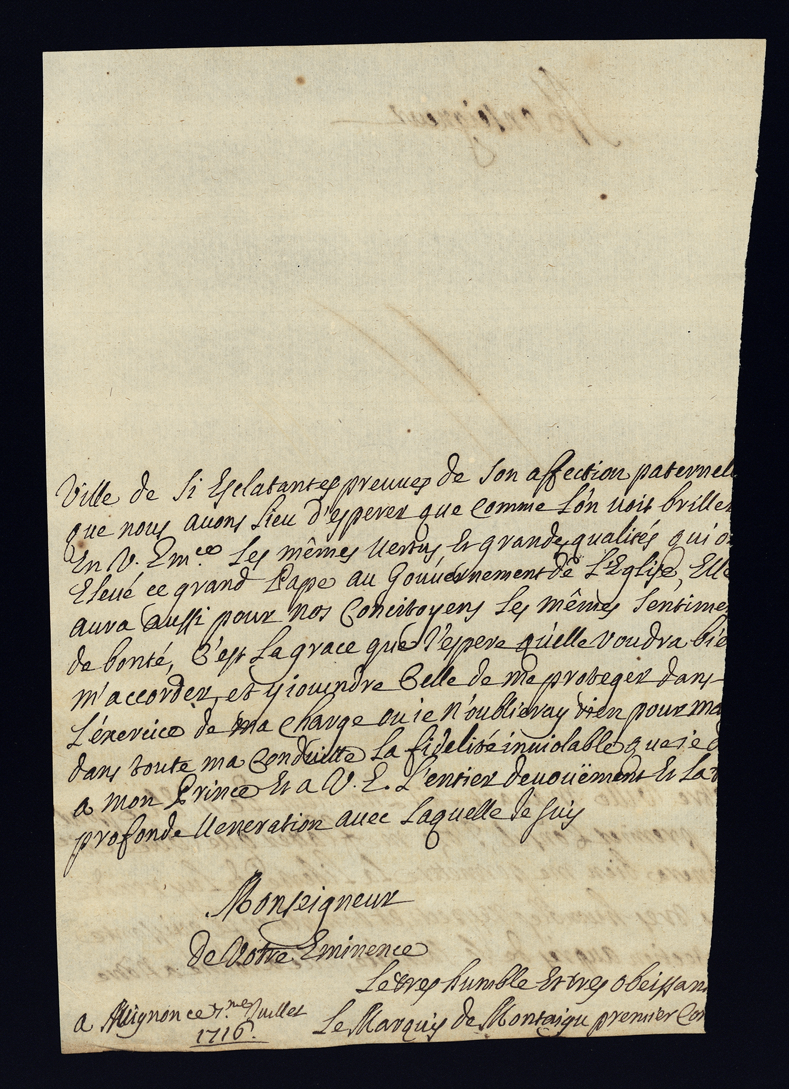 Ville de si Esclatantes preuues de son affection paternell
que nous auons lieu d'esperer que comme l'on uoit briller
En V. Em.ce les mêmes uertus et grandes qualités qui o
Eleué ce grand Pape au Gouuernement de l'Eglise, Elle
aura aussi pour nos Concitoyens les mêmes sentime
de bonté, C'est la grace que i'espere qu'elle voudra bie
m'accorder, et y ioindre Celle de me proteger dans
l'éxercice de ma charge ou ie n'oublieray rien pour ma
dans toute ma Conduitte la fidelité inuiolable que ie d
a mon Prince Et a V. E. l'entier deuoüement Et la
profonde Ueneration auec laquelle ie suis
Monseigneur
De Votre Eminence
Le tres humble Et tres obeissan
a Auignon ce 7.me Juillet
1716.
Le Marquis de Montaigu premier Con